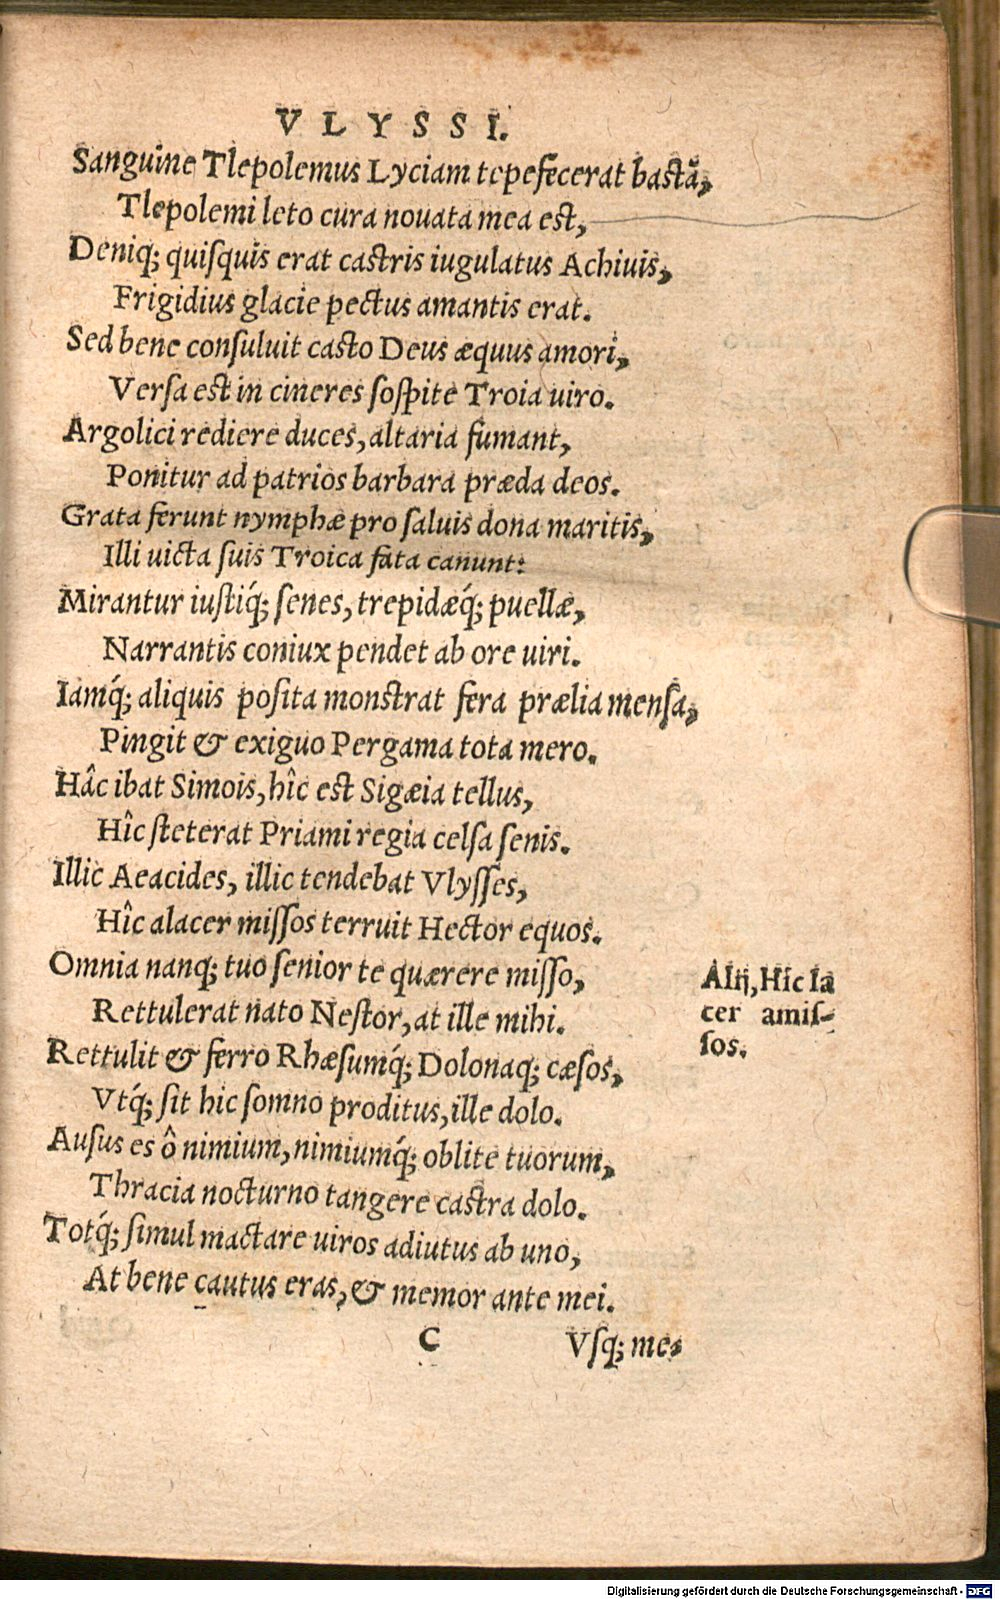 VLYSSI.
Sanguine Tlepolemus Lyciam tepefecerat hastã,
Tlepolemi leto cura nouata mea est,
Deniq; quiſquis erat castris iugulatus Achiuis,
Frigidius glacie pectus amantis erat.
Sed bene conſuluit casto Deus æquus amori,
Verſa est in cineres ſoſpite Troia uiro.
Argolici rediere duces, altaria fumant,
Ponitur ad patrios barbara præda deos.
Grata ferunt nymphæ pro ſaluis dona maritis,
Illi uicta ſuis Troica fata canunt:
Mirantur iustiq́; ſenes, trepidæq́; puellæ,
Narrantis coniux pendet ab ore uiri.
Iamq́; aliquis poſita monstrat fera prælia menſa,
Pingit & exiguo Pergama tota mero.
Hâc ibat Simois, hîc est Sigæia tellus,
Hîc ſteterat Priami regia celſa ſenis.
Illic Aeacides, illic tendebat Vlyſſes,
Hîc alacer miſſos terruit Hector equos.
Omnia nanq; tuo ſenior te quærere miſſo,
Rettulerat nato Neſtor, at ille mihi.
Rettulit & ferro Rhæſumq́; Dolonaq; cæſos,
Vtq́; ſit hic ſomno proditus, ille dolo.
Auſus es ô nimium, nimiumq́; oblite tuorum,
Thracia nocturno tangere castra dolo.
Totq́; ſimul mactare uiros adiutus ab uno,
At bene cautus eras, & memor ante mei.
Alij, Hîc la
cer amiſ-
ſos.
C Vſq; me-
Digitalisierung gefördert durch die Deutsche Forschungsgemeinschaft - DFG